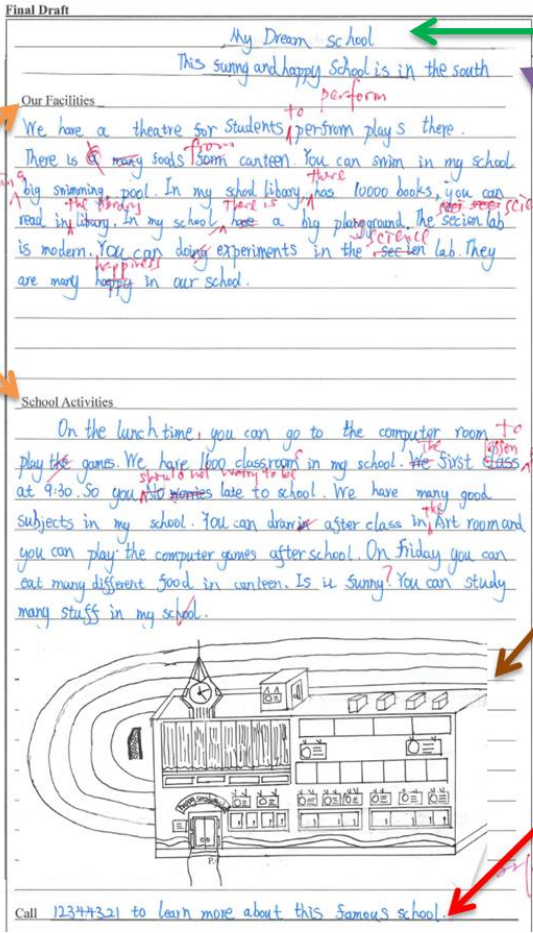 Final Draft
My Dream school
This sunny and happy School is in the south
perform
Our Facilities
to
We have a theatre for students perfrom plays there.
from
There is a many foods form canteen. You can swim in my school
there
big swimming pool. In my school libary, has 10000 books, you can
the library There is
read in libary. In my school, have a big playground. The secien lab
science
is modern. You can doing experiments in the secien lab. They
happiness
are many happy in our school.
School Activities
On the lunch time, you can go to the computer room to
the lesson
play the games. We have 1600 classrooms in my school. We first class
should not worry to be
at 9:30. So you no worries late to school. We have many good
the
subjects in my school. You can drawin after class in Art room and
you can play the computer games after school. On Friday you can
eat many different food in canteen. Is it funny? You can study
many stuff in my school.
Call 12344321 to learn more about this famous school.